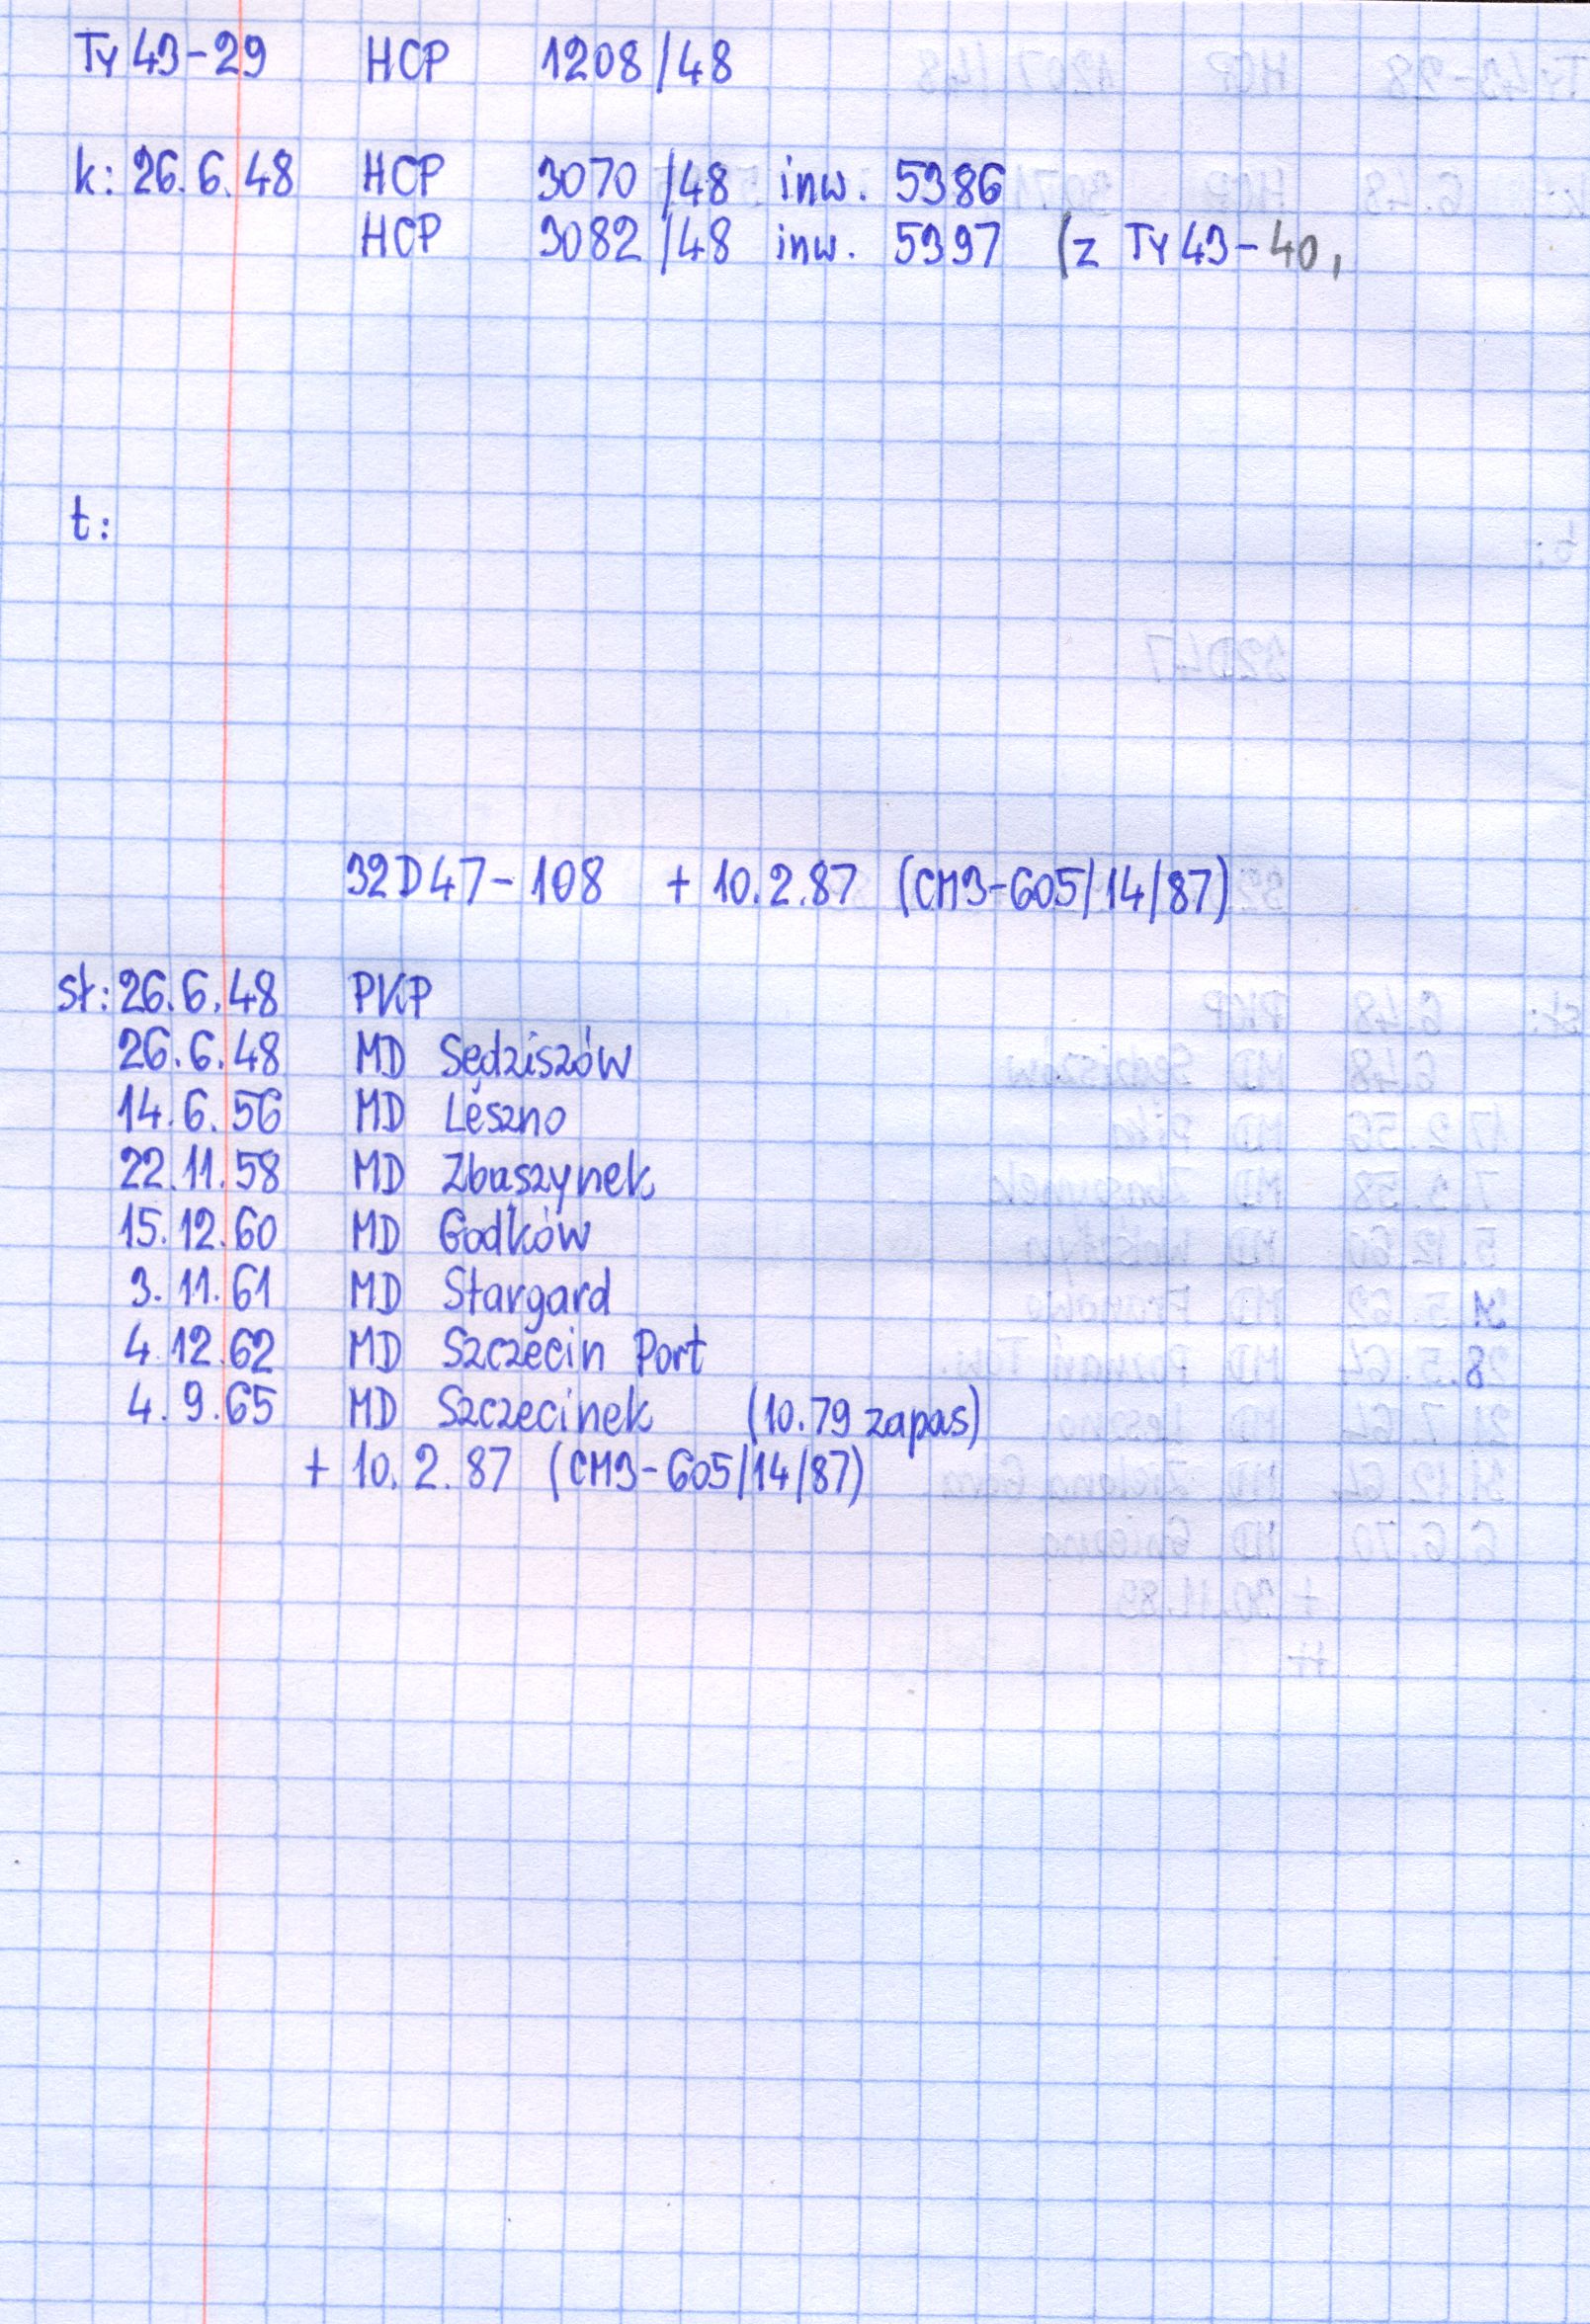 Ty 43-29 HCP 1208/48
k: 26.6.48 HCP 3070/48 inw. 5386
HCP 3082/48 inw. 5397 (z Ty 43-40,
t:
32D47-108 + 10.2.87 (CM3-605/14/87)
st: 26.6.48 PKP
26.6.48 MD Sędziszów
14.6.56 MD Leszno
22.11.58 MD Zbąszynek
15.12.60 MD Godków
3.11.61 MD Stargard
4.12.62 MD Szczecin Port
4.9.65 MD Szczecinek (10.79 zapas)
+ 10.2.87 (CM3-605/14/87)